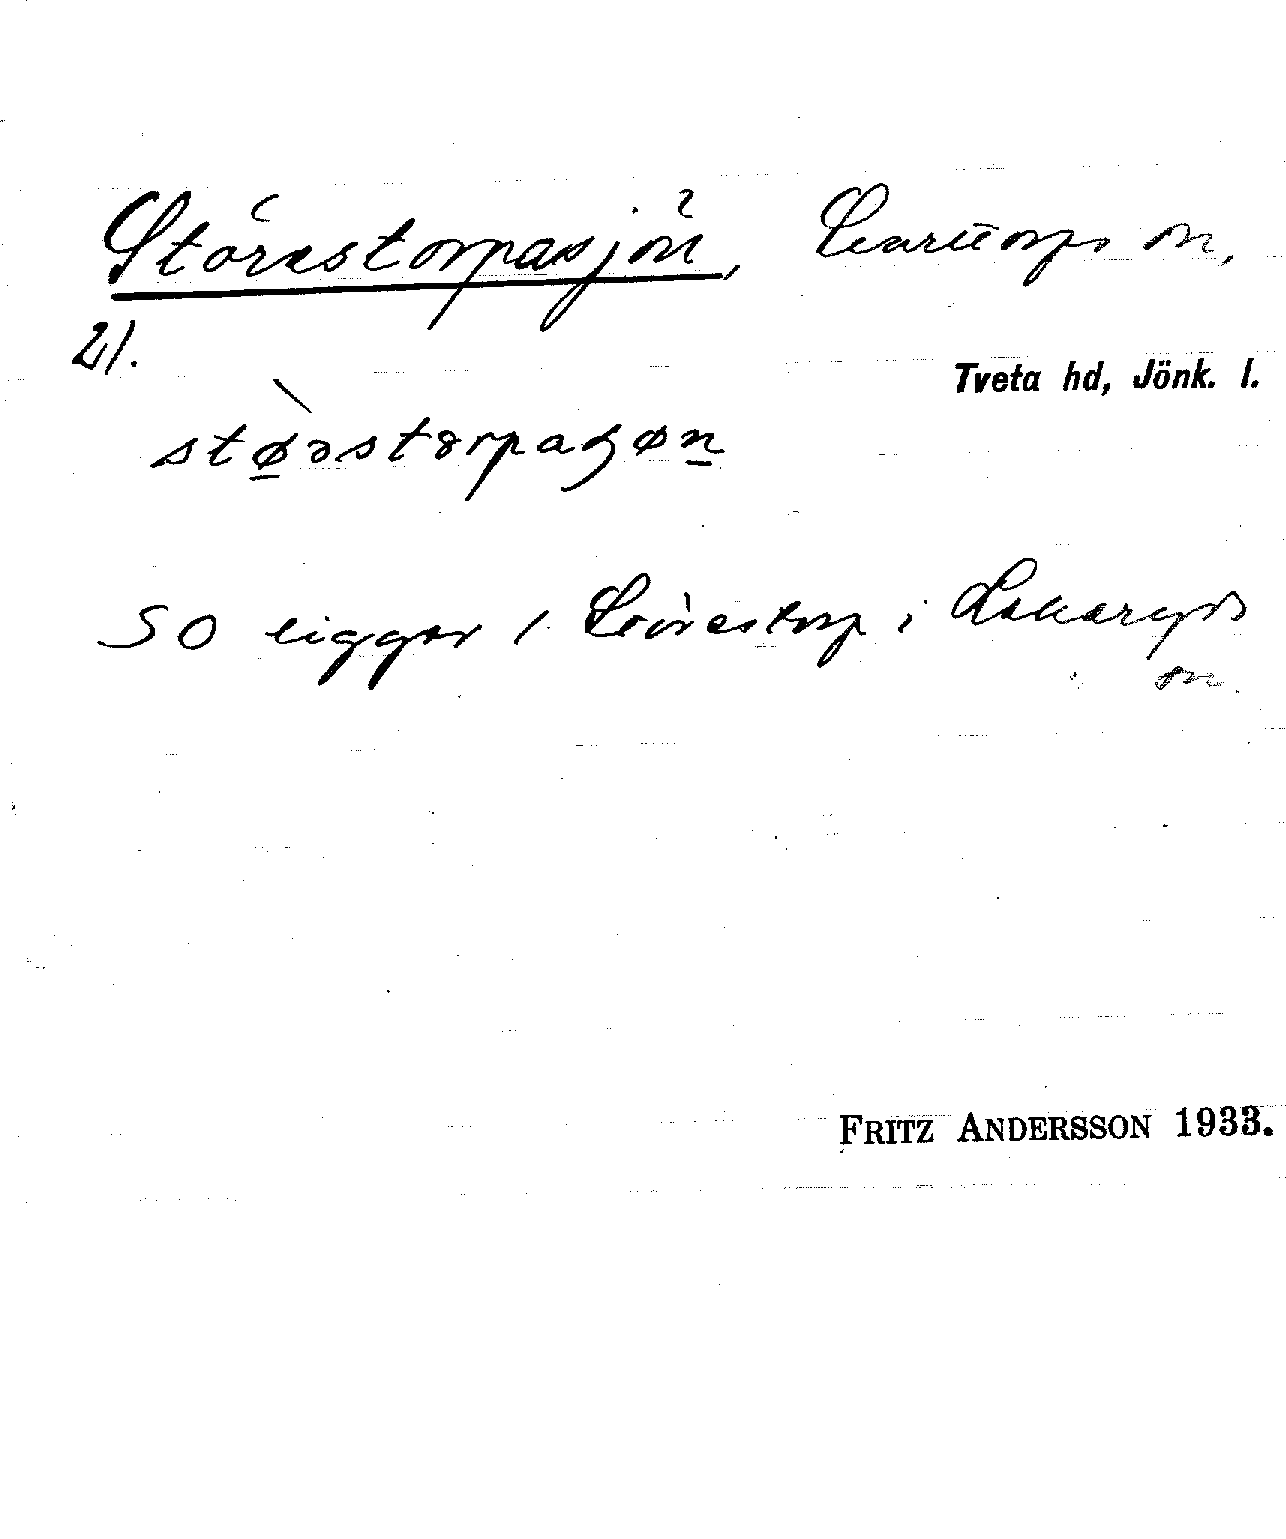 Störestorpasjön, sn,
21.
Tveta hd, Jönk. l.
størstorpaʂøn
SO ligger i Störestorp i Lekeryds
sn.
FRITZ ANDERSSON 1933.